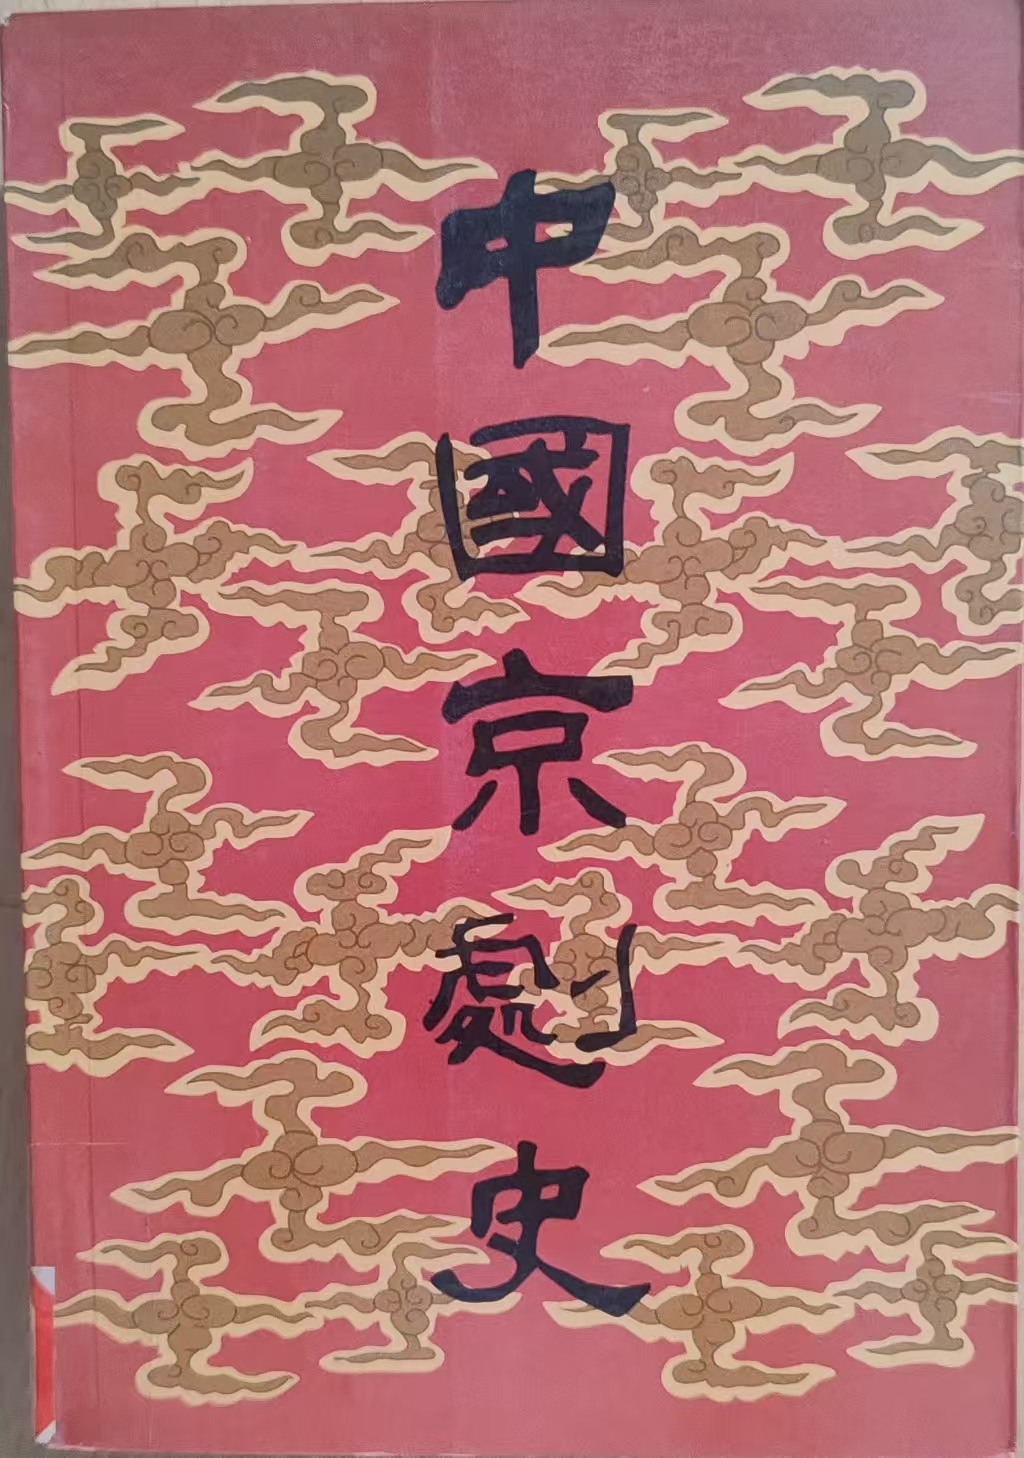 中國京劇史